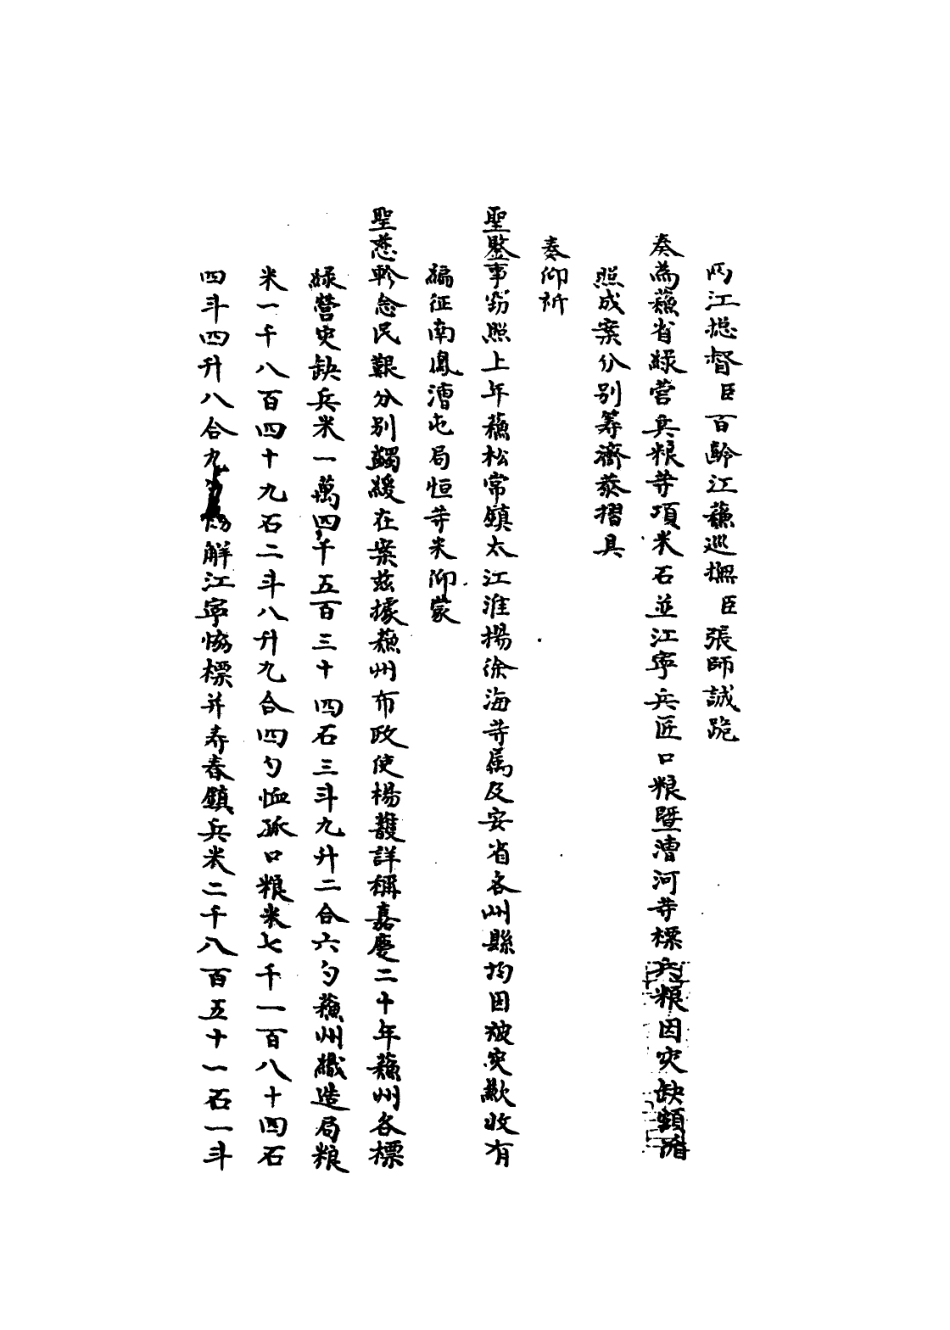 兩江總督臣百齡江蘇巡撫臣張師誠跪
奏為蘇省綠營兵粮等項米石並江寧兵匠口粮暨漕河等標兵粮因灾缺額
照成案分別籌濟恭摺具
奏仰祈
聖鑒事竊照上年蘇松常鎮太江淮揚徐海等属及安省各州縣均因被灾歉收有
編征南鳳漕屯局恤等米仰蒙
聖慈軫念民艱分別蠲緩在案兹據蘇州布政使楊頀詳稱嘉慶二十年蘇州各標
綠營灾缺兵米一萬四千五百三十四石三斗九升二合六勺蘇州織造局粮
米一千八百四十九石二斗八升九合四勺恤孤口粮米七千一百八十四石
四斗四升八合九勺協解江寧協標并寿春鎮兵米二千八百五十一石一斗